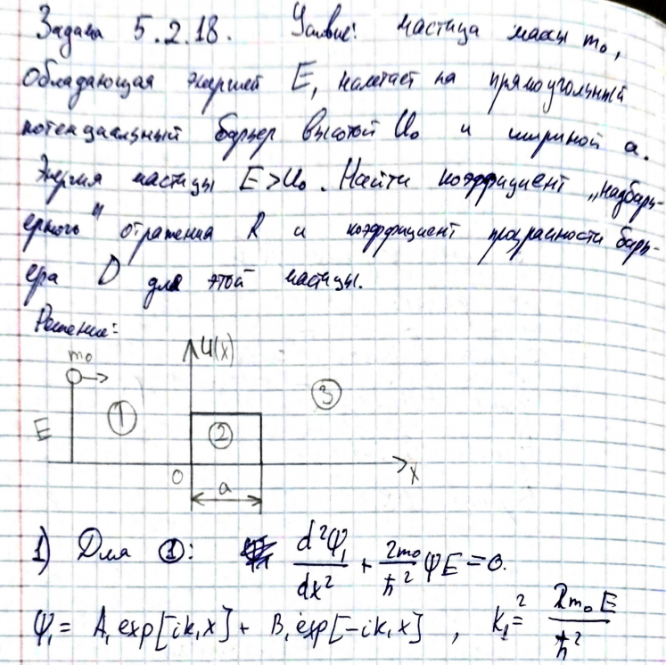 Задача 5.2.18. Условие: частица массы m₀,
обладающая энергией E, налетает на прямоугольный
потенциальный барьер высотой U₀ и шириной a.
Энергия частицы E>U₀. Найти коэффициент „надбарь-
ерного" отражения R и коэффициент прозрачности барь-
ера D для этой частицы.
Решение:
m₀
U(x)
E
1
2
3
0
a
x
1) Для 1: d²Ψ₁/dx² + 2m₀/ħ² ΨE = 0.
Ψ₁ = A₁ exp[ik₁x] + B₁ exp[-ik₁x] , k₁² = 2m₀E/ħ²